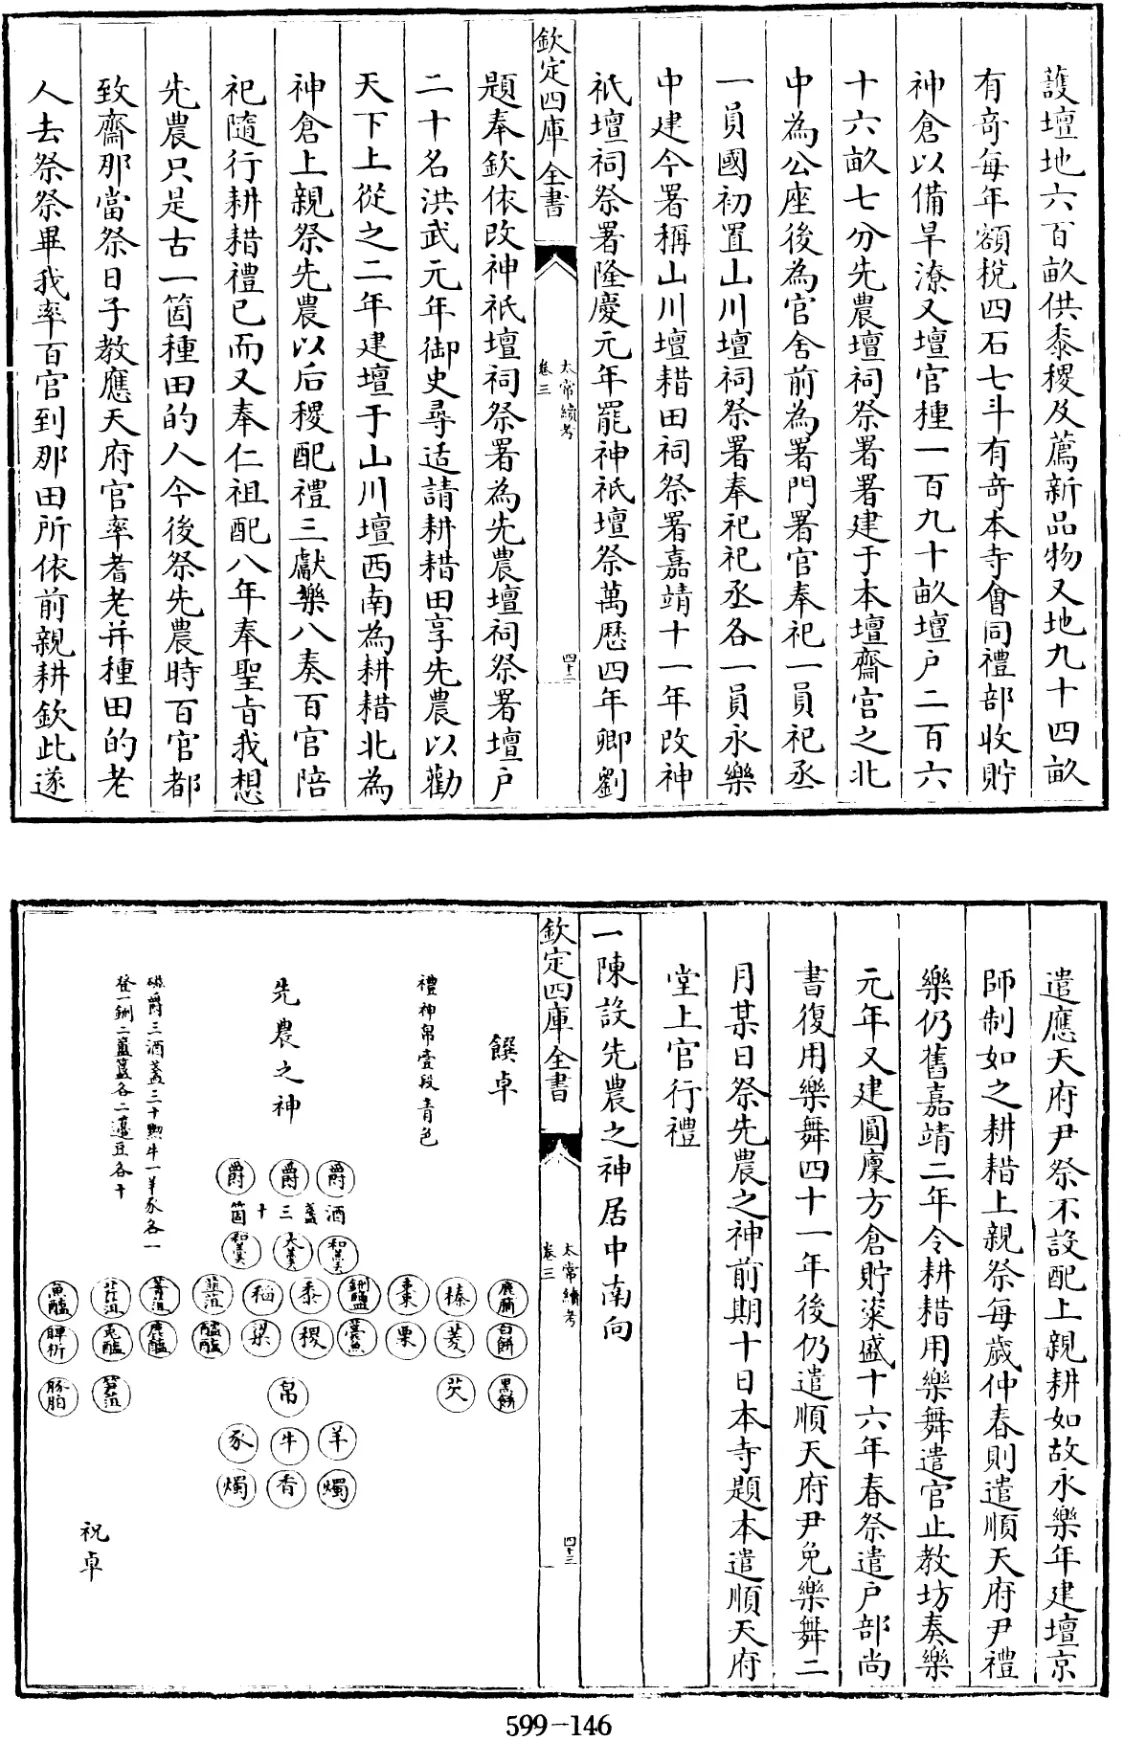 護壇地六百畝供黍稷及薦新品物又地九十四畝
有奇每年額稅四石七斗有奇本寺會同禮部收貯
神倉以備旱潦又壇官種一百九十畝壇户二百六
十六畝七分先農壇祠祭署署建于本壇齋宫之北
中為公座後為官舍前為署門署官奉祀一員祀丞
一員國初置山川壇祠祭署奉祀祀丞各一員永樂
中建今署稱山川壇耤田祠祭署嘉靖十一年改神
祇壇祠祭署隆慶元年罷神祇壇祭萬歷四年卿劉
欽定四庫全書
太常續考
卷三
四十二
題奉欽依改神祇壇祠祭署為先農壇祠祭署壇户
二十名洪武元年御史尋适請耕耤田享先農以勸
天下上從之二年建壇于山川壇西南為耕耤北為
神倉上親祭先農以后稷配禮三獻樂八奏百官陪
祀隨行耕耤禮已而又奉仁祖配八年奉聖旨我想
先農只是古一箇種田的人今後祭先農時百官都
致齋那當祭日子教應天府官率耆老并種田的老
人去祭祭畢我率百官到那田所依前親耕欽此遂
遣應天府尹祭不設配上親耕如故永樂年建壇京
師制如之耕耤上親祭每歲仲春則遣順天府尹禮
樂仍舊嘉靖二年令耕耤用樂舞遣官止教坊奏樂
元年又建圓廩方倉貯粢盛十六年春祭遣户部尚
書復用樂舞四十一年後仍遣順天府尹免樂舞二
月某日祭先農之神前期十日本寺題本遣順天府
堂上官行禮
一陳設先農之神居中南向
欽定四庫全書
太常續考
卷三
四十三
饌卓
禮神帛壹段青色
先農之神
磁爵三酒盞三十𤍠牛一羊豕各一
登一鉶二簠簋各二籩豆各十
爵 爵 爵
酒盞三十箇
和羹 太羹 和羹
魚醢 芹菹 菁菹 韭菹 稻 黍 鉶鹽 棗 榛 鹿脯
脾析 兎醢 鹿醢 醓醢 粱 稷 藁魚 栗 菱 白餅
豚胉 筍菹 帛 芡 黑餅
豕 牛 羊
燭 香 燭
祝卓
599-146